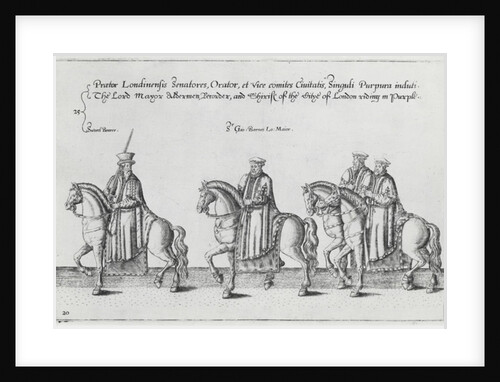 Prætor Londinensis Senatores, Orator, et Vice comites Ciuitatis, Singuli Purpura induti.
The Lord Mayor Aldermen, Recorder, and Sherifs of the Citye of London riding in Purple.
Sword Bearer.
Sr Barnes Lo: Maior.
20